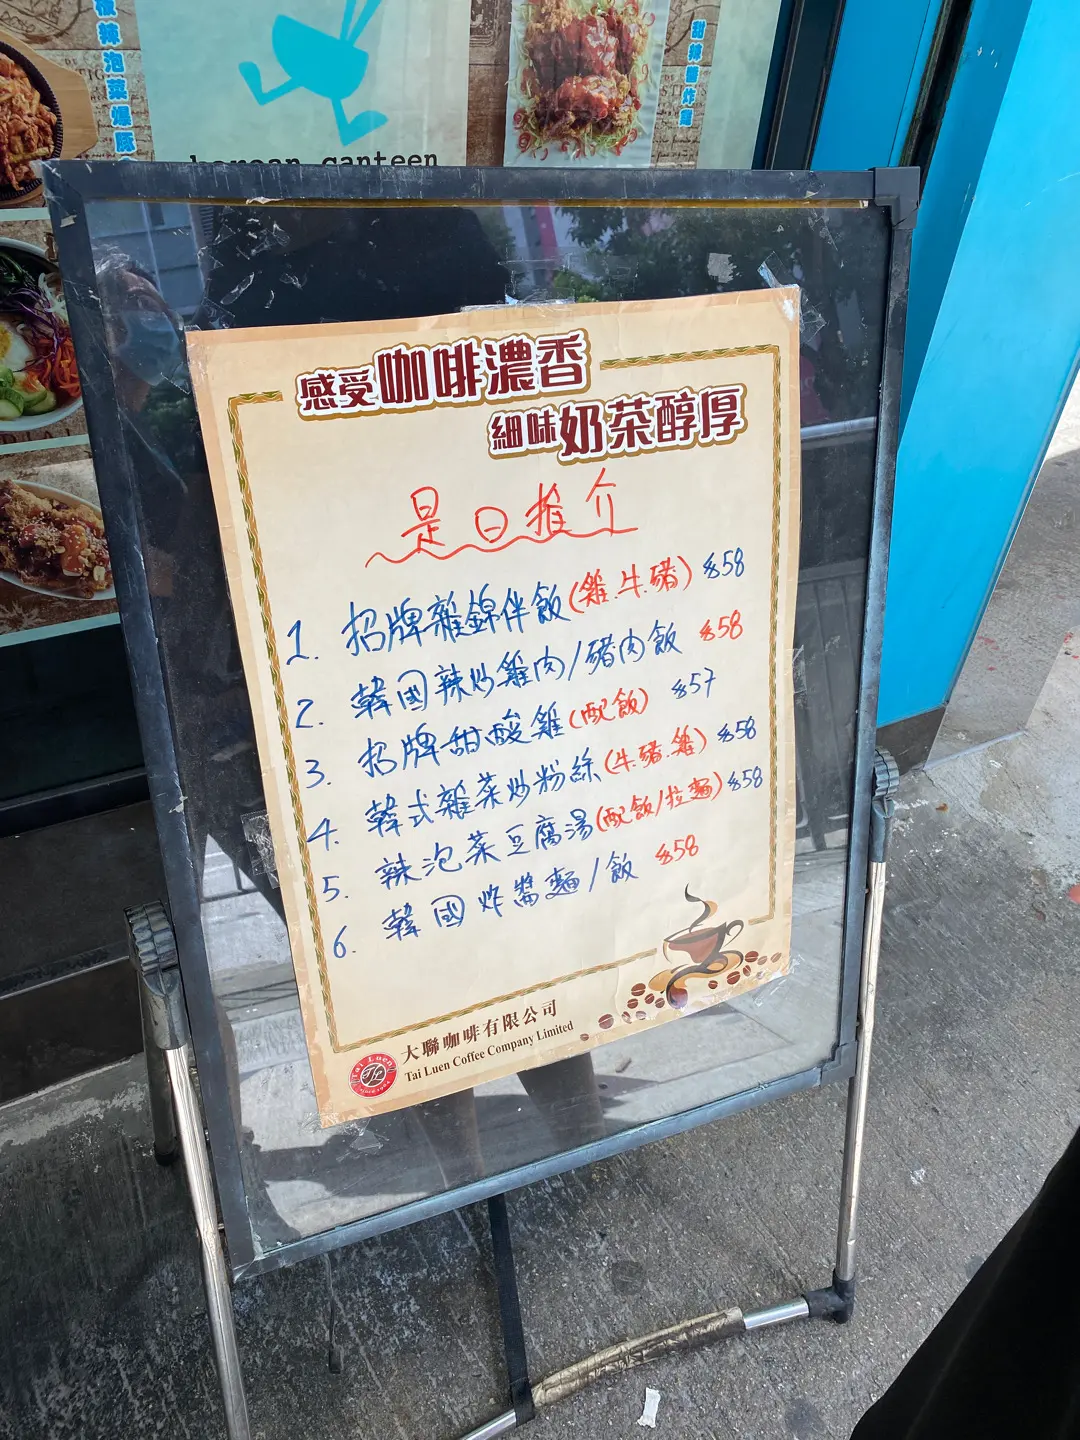 辣泡菜
korean canteen
甜辣醬炸雞
感受咖啡濃香
細味奶茶醇厚
是日推介
1. 招牌雜錦伴飯(雞.牛.豬) $58
2. 韓國辣炒雞肉/豬肉飯 $58
3. 招牌甜酸雞(配飯) $57
4. 韓式雜菜炒粉絲(牛.豬.雞) $58
5. 辣泡菜豆腐湯(配飯/拉麵) $58
6. 韓國炸醬麵/飯 $58
Tai Luen
大聯咖啡有限公司
Tai Luen Coffee Company Limited